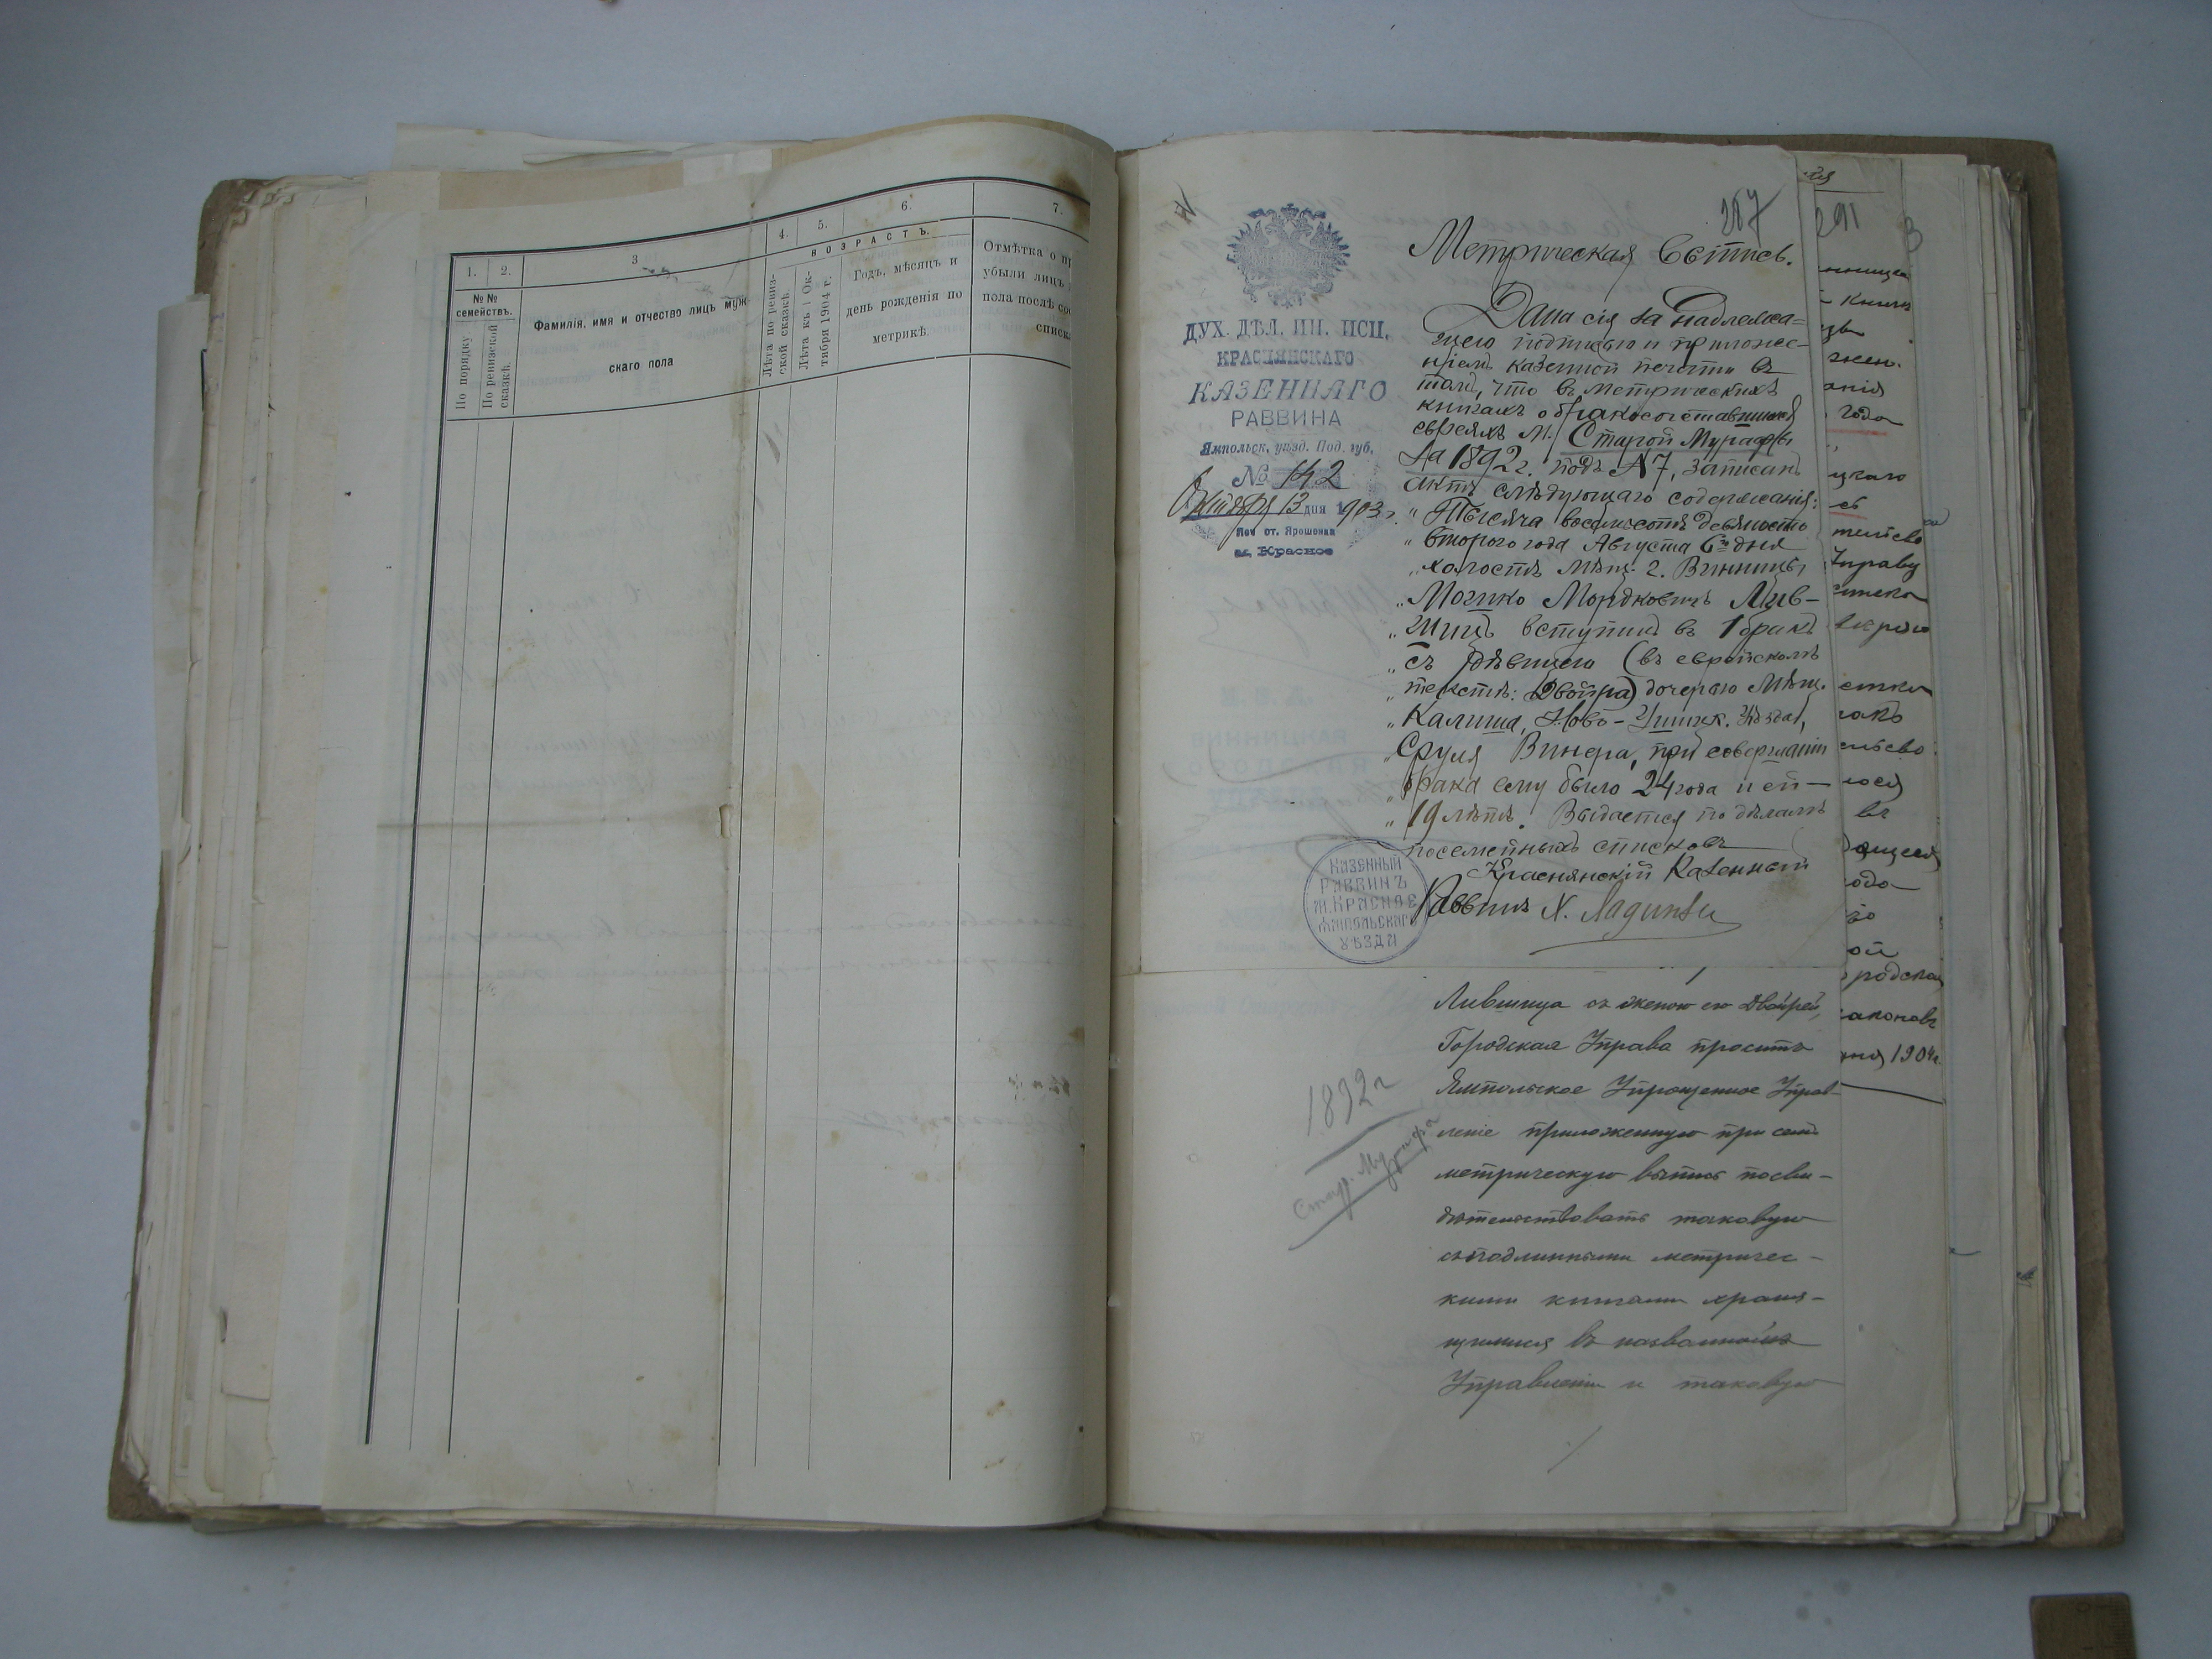 1.
2.
3
4.
5.
6.
7.
ВОЗРАСТЪ.
№ №
семействъ.
По порядку
По ревизской
сказкѣ.
Фамилія, имя и отчество лицъ муж-
скаго пола
Лѣта по ревиз-
ской сказкѣ.
Лѣта къ 1 Ок-
тября 1904 г.
Годъ, мѣсяцъ и
день рожденія по
метрикѣ
Отмѣтка о пр
убыли лицъ
пола послѣ со
списк
287
ДУХ. ДѢЛ. ИН. ИСП.
КРАСНЯНСКАГО
КАЗЕННАГО
РАВВИНА
Ямпольск. уѣзд. Под. губ.
№ 142
Октября 13 дня 1903 г.
Поч. ст. Ярошенка
м. Красное
Метрическая Выпись.
Дана сія за надлежа=
щею подписью и приложе-
ніемъ казенной печати въ
томъ, что въ метрическихъ
книгахъ о бракосочетавшихся
евреяхъ м. Старой Мурафы
за 1892 г. подъ № 7, записанъ
актъ слѣдующаго содержанія:
" Тысяча восемьсотъ девяносто
" второго года Августа 6го дня
" холостъ мѣщ. г. Винницы
" Мошко Мордковичъ Лив-
" шицъ вступилъ въ 1 бракъ
" съ дѣвицею (въ еврейскомъ
" текстѣ: Двойра) дочерью мѣщ.
" Калиша, Ново-Ушицк. уѣзда,
" Сруля Винера, при совершеніи
" брака ему было 24 года и ей —
" 19 лѣтъ. Выдается по дѣламъ
посемейныхъ списковъ
Краснянскій Казенный
Раввинъ Х.
КАЗЕННЫЙ
РАВВИНЪ
М. КРАСНОЕ
ЯМПОЛЬСКАГО
УѢЗДА
Лившица съ женою его Двойрей,
Городская Управа проситъ
Ямпольское Упрощенное Управ-
леніе приложенную при семъ
метрическую выпись посви-
дѣтельствовать таковую
съ подлинными метричес-
кими книгами храня-
щимися въ названномъ
Управленіи и таковую
1892 г
Стар. Мурафа
291
года
цкаго
Управу
въ
ой
родская
законовъ
1904 г.